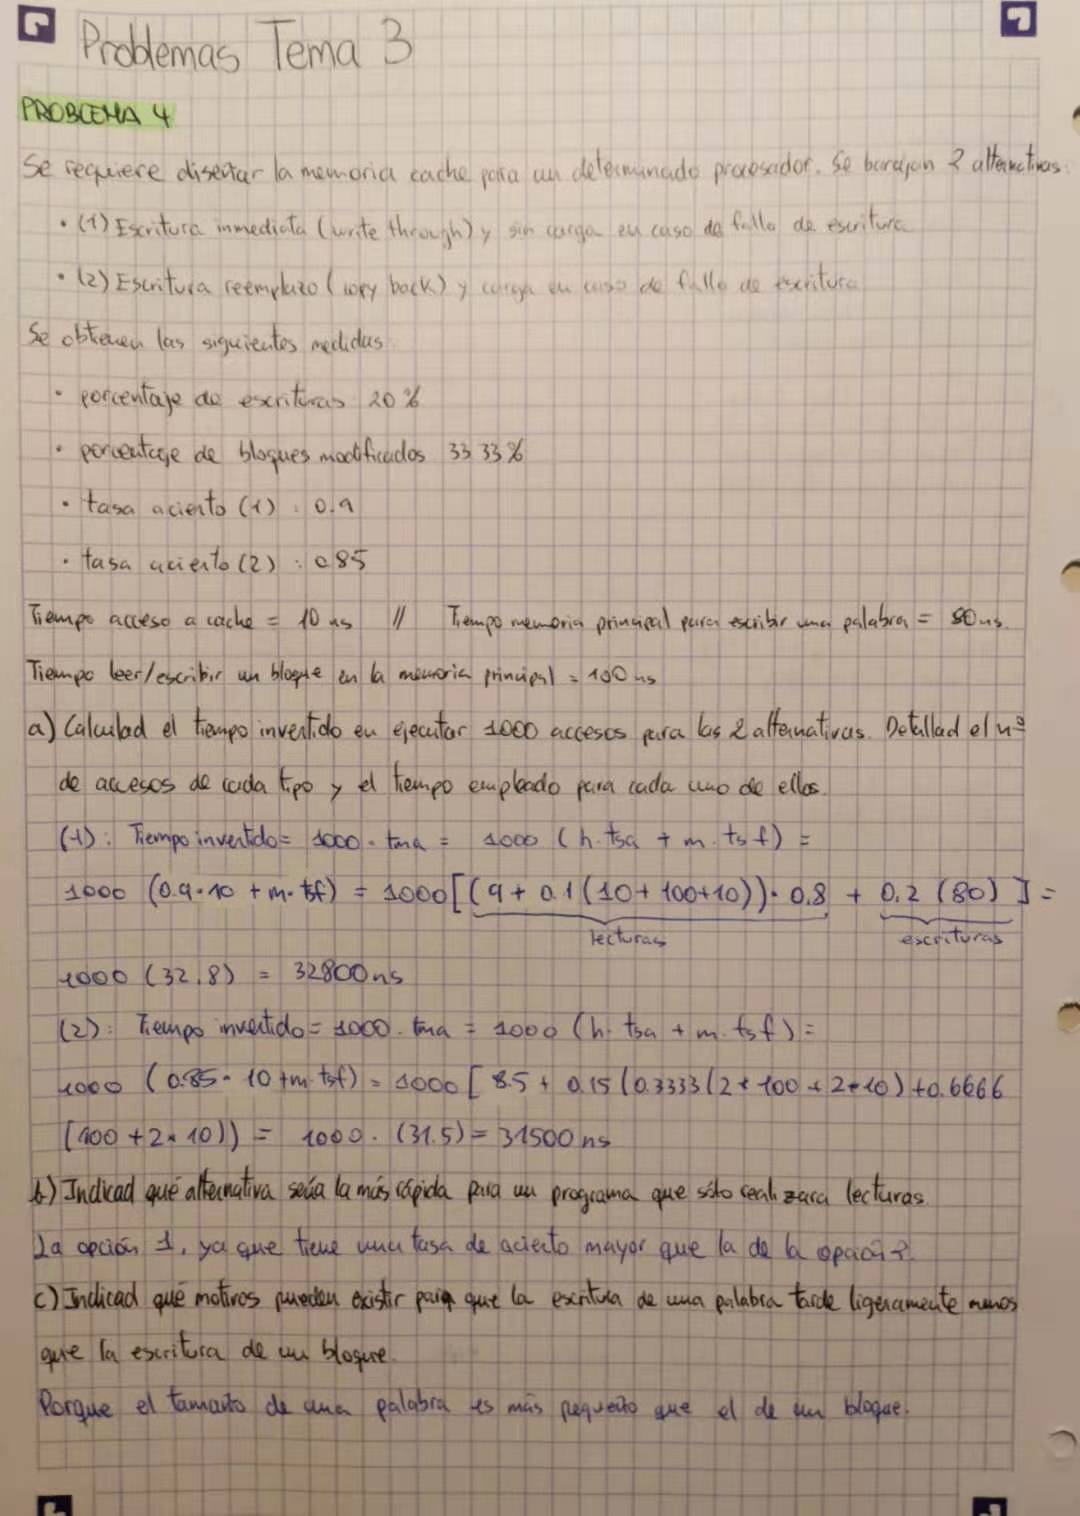 Problemas Tema 3
PROBLEMA 4
Se requiere diseñar la memoria cache para un determinado procesador. Se barajan 2 alternativas:
• (1) Escritura inmediata (write through) y sin carga en caso de fallo de escritura
• (2) Escritura reemplazo (copy back) y carga en caso de fallo de escritura
Se obtienen las siguientes medidas
• porcentaje de escrituras 20%
• porcentaje de bloques modificados 33 33%
• tasa acierto (1) : 0.9
• tasa acierto (2) : 0.85
Tiempo acceso a cache = 10 ns // Tiempo memoria principal para escribir una palabra = 80 ns.
Tiempo leer/escribir un bloque en la memoria principal = 100 ns
a) Calculad el tiempo invertido en ejecutar 1000 accesos para las 2 alternativas. Detallad el nº
de accesos de cada tipo y el tiempo empleado para cada uno de ellos.
(1): Tiempo invertido = 1000 · tma = 1000 (h · tsa + m · tsf) =
1000 (0.9 · 10 + m · tsf) = 1000[(9 + 0.1(10 + 100+10)) · 0.8 + 0.2 (80)] =
lecturas escrituras
1000 (32.8) = 32800 ns
(2): Tiempo invertido = 1000 · tma = 1000 (h · tsa + m · tsf) =
1000 (0.85 · 10 + m · tsf) = 1000 [ 8.5 + 0.15 (0.3333(2 * 100 + 2 * 10) + 0.6666
(100 + 2 * 10)) = 1000 · (31.5) = 31500 ns
b) Indicad qué alternativa sería la más rápida para un programa que sólo realizara lecturas.
La opción 1, ya que tiene una tasa de acierto mayor que la de la opción 2.
c) Indicad qué motivos pueden existir para que la escritura de una palabra tarde ligeramente menos
que la escritura de un bloque.
Porque el tamaño de una palabra es más pequeño que el de un bloque.